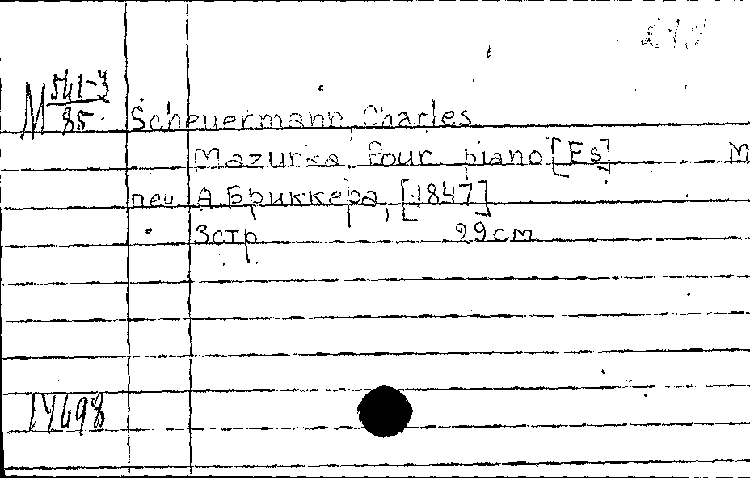 М 541-3
85
Scheuermann, Charles
Mazurka pour piano [Es] М
печ. А. Бриккера, [1847]
3 стр. 29 cm
17498